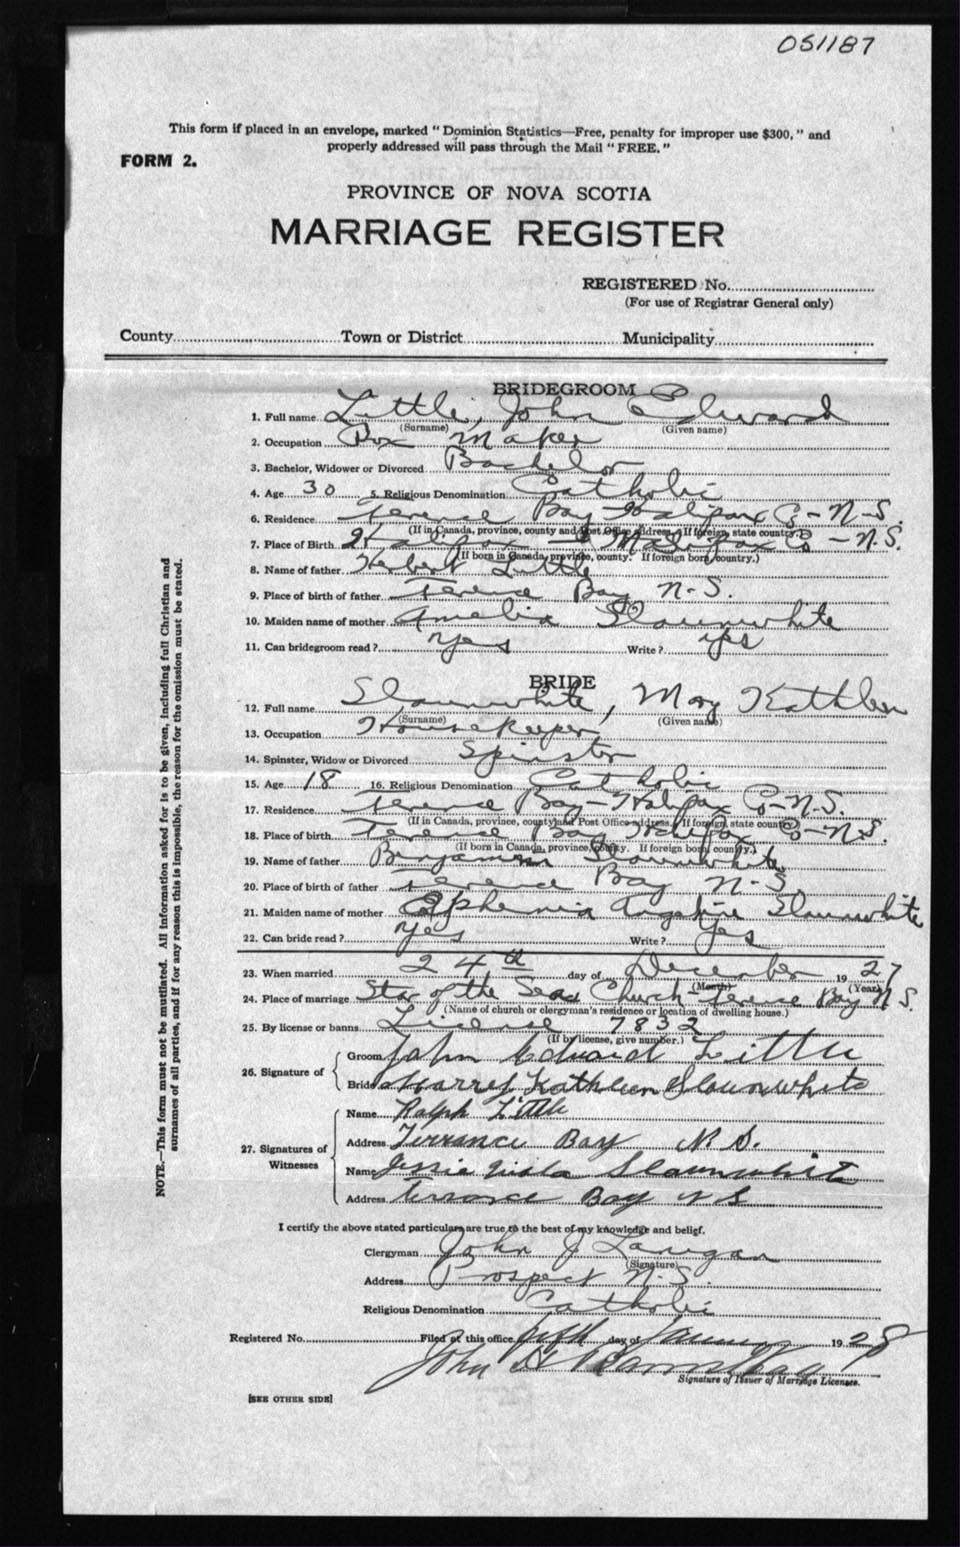 051187
This form if placed in an envelope, marked "Dominion Statistics—Free, penalty for improper use $300," and
properly addressed will pass through the Mail "FREE."
FORM 2.
PROVINCE OF NOVA SCOTIA
MARRIAGE REGISTER
REGISTERED No.
(For use of Registrar General only)
County Town or District Municipality
BRIDEGROOM
1. Full name Little, John Edward
(Surname) (Given name)
2. Occupation Box Maker
3. Bachelor, Widower or Divorced Bachelor
4. Age 30 5. Religious Denomination Catholic
6. Residence Terence Bay-Halifax Co-N-S.
(If in Canada, province, county and Post Office address. If foreign, state country.)
7. Place of Birth Halifax Halifax Co-N.S.
(If born in Canada, province, county. If foreign born, country.)
8. Name of father Herbert Little
9. Place of birth of father Terence Bay N-S.
10. Maiden name of mother Amelia Slaunwhite
11. Can bridegroom read? yes Write? yes
BRIDE
12. Full name Slaunwhite, Mary Kathleen
(Surname) (Given name)
13. Occupation Housekeeper
14. Spinster, Widow or Divorced Spinster
15. Age 18 16. Religious Denomination Catholic
17. Residence Terence Bay-Halifax Co-N.S.
(If in Canada, province, county and Post Office address. If foreign, state country.)
18. Place of birth Terence Bay Halifax Co-N.S.
(If born in Canada, province, county. If foreign born, country.)
19. Name of father Benjamin Slaunwhite
20. Place of birth of father Terence Bay N-S
21. Maiden name of mother Slaunwhite
22. Can bride read? yes Write? yes
23. When married 24th day of December 1927
(Month) (Year)
24. Place of marriage Star of the Sea Church-Terence Bay N.S.
(Name of church or clergyman's residence or location of dwelling house.)
25. By license or banns License 7832
(If by license, give number.)
26. Signature of
Groom John Edward Little
Bride Kathleen Slaunwhite
27. Signatures of Witnesses
Name Ralph Little
Address Terrance Bay N.S.
Name Jessie Slaunwhite
Address Terrance Bay N S
I certify the above stated particulars are true to the best of my knowledge and belief.
Clergyman John J Lanigan
(Signature)
Address Prospect N.S.
Religious Denomination Catholic
Registered No. Filed at this office fifth day of January 1928
John
Signature of Issuer of Marriage Licenses.
[SEE OTHER SIDE]
NOTE.—This form must not be mutilated. All information asked for is to be given, including full Christian and
surnames of all parties, and if for any reason this is impossible, the reason for the omission must be stated.